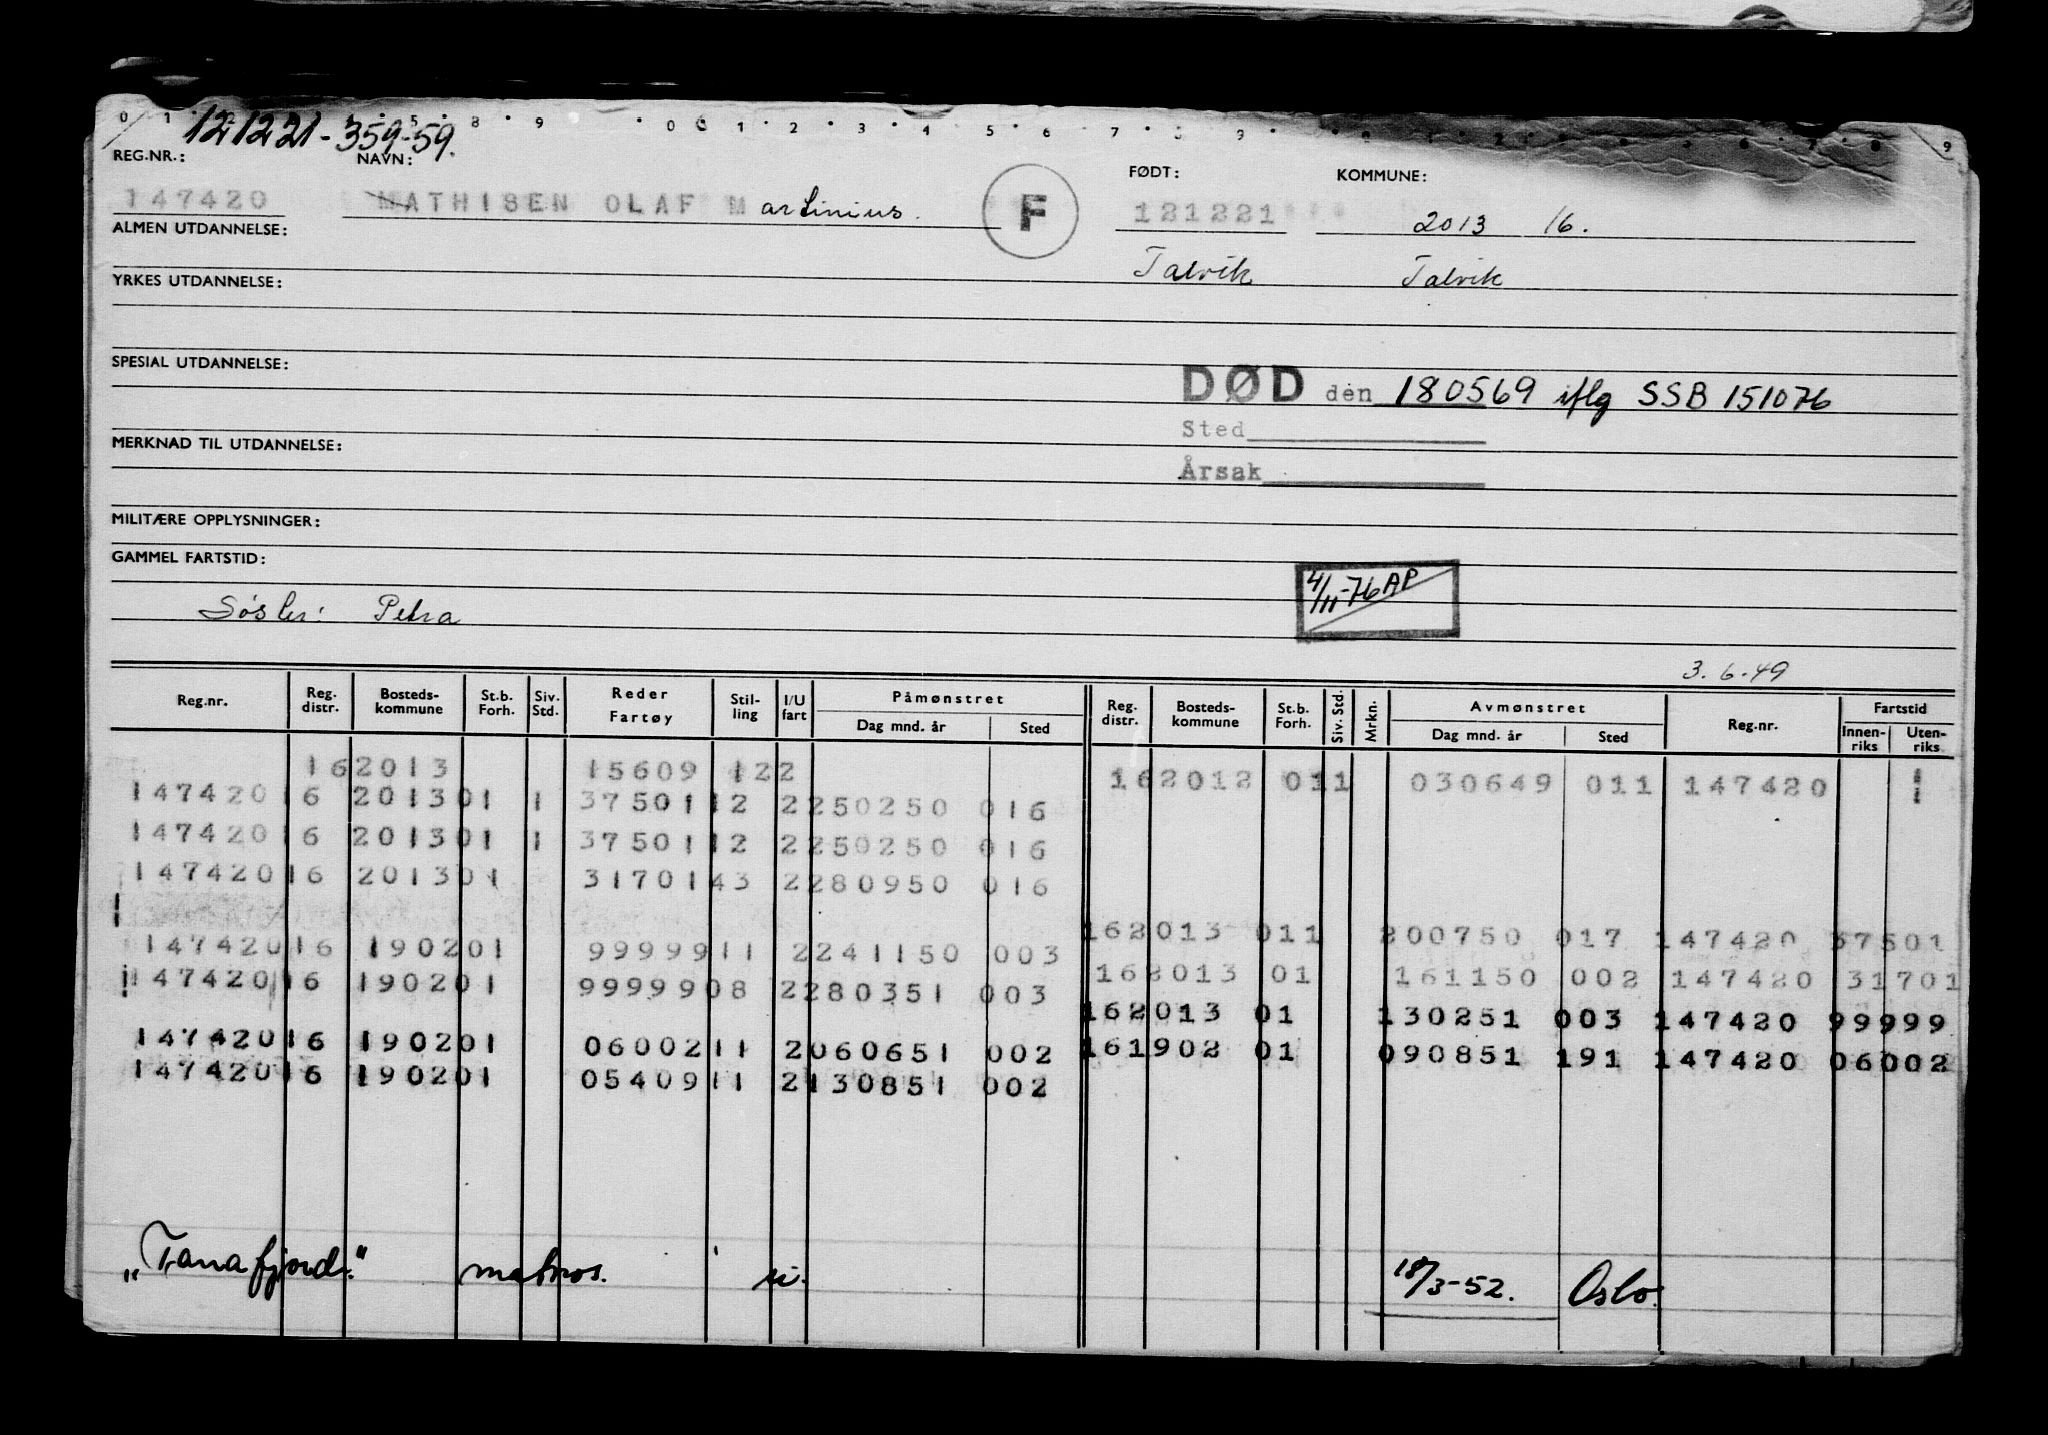 0 1 2 5 8 9 0 6 1 2 3 4 5 6 7 9 9
121221-359-59.
REG.NR.: NAVN: FØDT: KOMMUNE:
147420 MATHISEN OLAF Martinius. F 121221 2013 16.
ALMEN UTDANNELSE:
Talvik Talvik
YRKES UTDANNELSE:
SPESIAL UTDANNELSE:
DØD den 180569 iflg SSB 151076
Sted
MERKNAD TIL UTDANNELSE:
Årsak
MILITÆRE OPPLYSNINGER:
GAMMEL FARTSTID:
4/11-76 AP
Søster: Petra
3.6.49
Reg.nr. Reg. distr. Bosteds-kommune St.b. Forh. Siv. Std. Reder Fartøy Stil-ling I/U fart Påmønstret Dag mnd. år Sted Reg. distr. Bosteds-kommune St.b. Forh. Siv. Std. Mrkn. Avmønstret Dag mnd. år Sted Reg.nr. Fartstid Innen-riks Uten-riks
162013 15609 122 162012 011 030649 011 147420
147420 16 201301 1 37501 12 2 250250 016
147420 16 201301 1 37501 12 2 250250 016
147420 16 201301 31701 43 2 280950 016
162013 011 200750 017 147420 37501
147420 16 190201 99999 11 2 241150 003
162013 01 161150 002 147420 31701
147420 16 190201 99999 08 2 280351 003
162013 01 130251 003 147420 99999
147420 16 190201 06002 11 2 060651 002
161902 01 090851 191 147420 06002
147420 16 190201 05409 11 2 130851 002
"Tanafjord." matros. u. 18/3-52. Oslo.